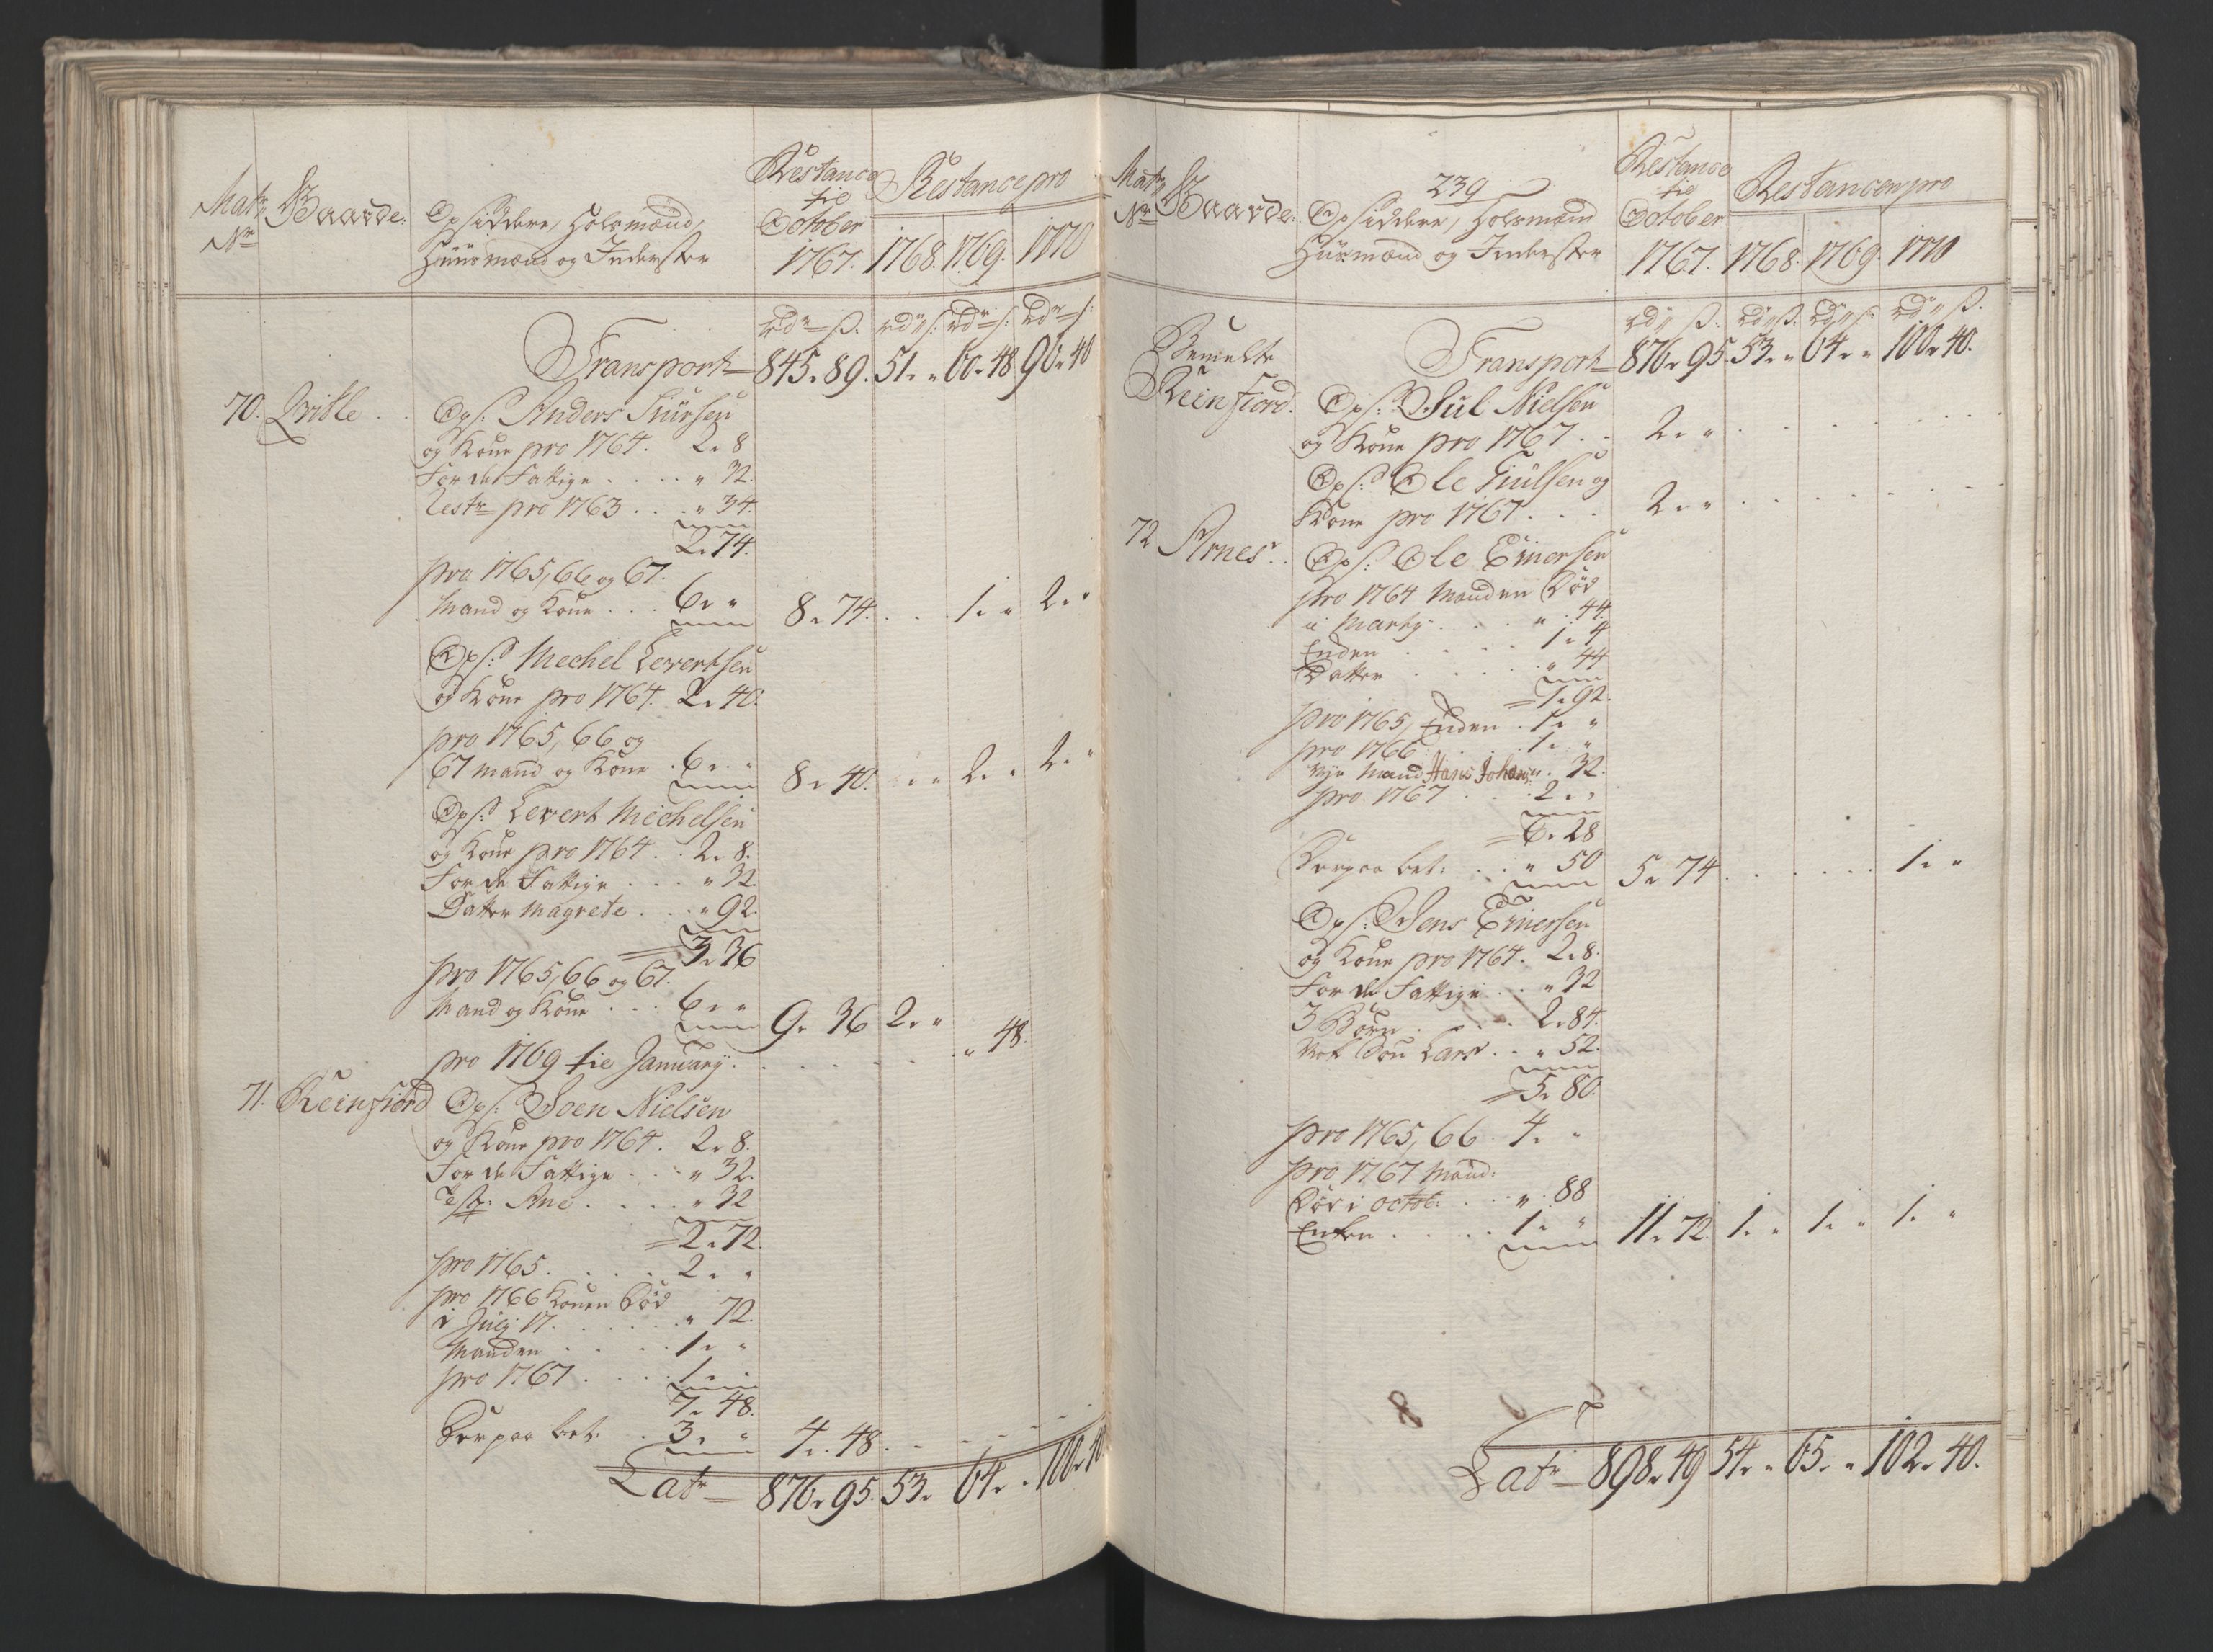 Matr Nr
Gaarde.
Opsiddere, Holsmænd,
Huusmænd og Inderster
Restance
til
October
1767.
Restance pro
1768. 1769. 1770
rdr ß. rd ß. rdr ß. rdr ß.
Transport 845 " 89. 51 " " 60 " 48 96 " 40
70. Ops: Anders Siursen
og Kone pro 1764. 2 " 8
For de Fattige . . . . " 32.
Restr pro 1763 . . . " 34.
2 " 74.
pro 1765, 66 og 67.
Mand og Kone . . . 6 " " 8 " 74. . . . 1 " " 2 " "
Ops: Mechel Levertsen
og Kone pro 1764. 2 " 40.
pro 1765, 66 og
67 mand og Kone . 6 " " 8 " 40. " " 2 " " 2 " "
Ops: Levert Michelsen
og Kone pro 1764. . 2 " 8.
For de Fattige . . . " 32.
Datter Magrete . . . " 92.
3 " 36
pro 1765, 66 og 67.
Mand og Kone . . . 6 " " 9 " 36 2 " "
pro 1769 til January . . . . . . " 48.
71. Reinfiord Ops: Joen Nielsen
og Kone pro 1764. 2 " 8.
For de Fattige . . . " 32.
Test: Ane . . . . " 32
2 " 72.
pro 1765. . . . . 2 " "
pro 1766 Konen död
d July 17. . . . . " 72.
Manden . . . . 1 " "
pro 1767 . . . . 1 " "
7 " 48.
Derpaa bet. . 3 " " 4 " 48. . . . .
Latr 876 " 95. 53 " 64 " " 100 " 40
Matr Nr
Gaarde.
239
Opsiddere, Holsmænd
Huusmænd og Inderster
Restance
til
October
1767.
Restancen pro
1768. 1769. 1770
rd ß. rd ß. rd ß. rd ß.
Bemelte
Reinfiord.
Transport 876 " 95. 53 " " 64 " " 100 " 40.
Ops: Siul Nielsen
og Kone pro 1767 . . 2 " " . . . . .
Ops: Ole Siulsen og
Kone pro 1767 . . . 2 " " . . . . .
72 Arnes . . Ops: Ole Einersen
pro 1764 Manden död
i Marty . . . " 44.
Enken . . . . 1 " 4
Datter . . . . " 44
1 " 92.
pro 1765, Enken . 1 " "
pro 1766 . . . 1 " "
nye Mand Hans Johans: " 32.
pro 1767 . . . 2 " "
6 " 28
Derpaa bet: . . " 50 5 " 74. . . . . . 1 " "
Ops: Jens Einersen
og Kone pro 1764. 2 " 8.
For de Fattige . . " 32
3 Börn . . . . 2 " 84.
Nok Sön Lars . . " 52.
5 " 80.
pro 1765, 66. 4 " "
pro 1767 Mand:
död i octob: . . " 88
Enken . . . . 1 " " 11 " 72. 1 " " 1 " " 1 " "
Latr 898 " 49 54 " " 65 " " 102 " 40.